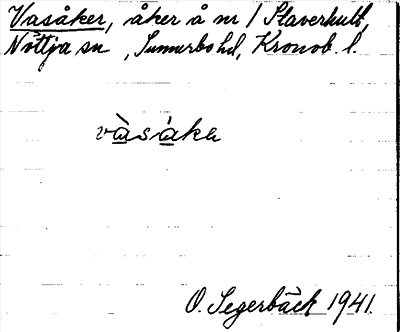 Vasåker, åker å nr 1 Staverhult,
Nöttja sn, Sunnerbo hd, Kronob. l.
vàsáka
O. Segerbäck 1941.